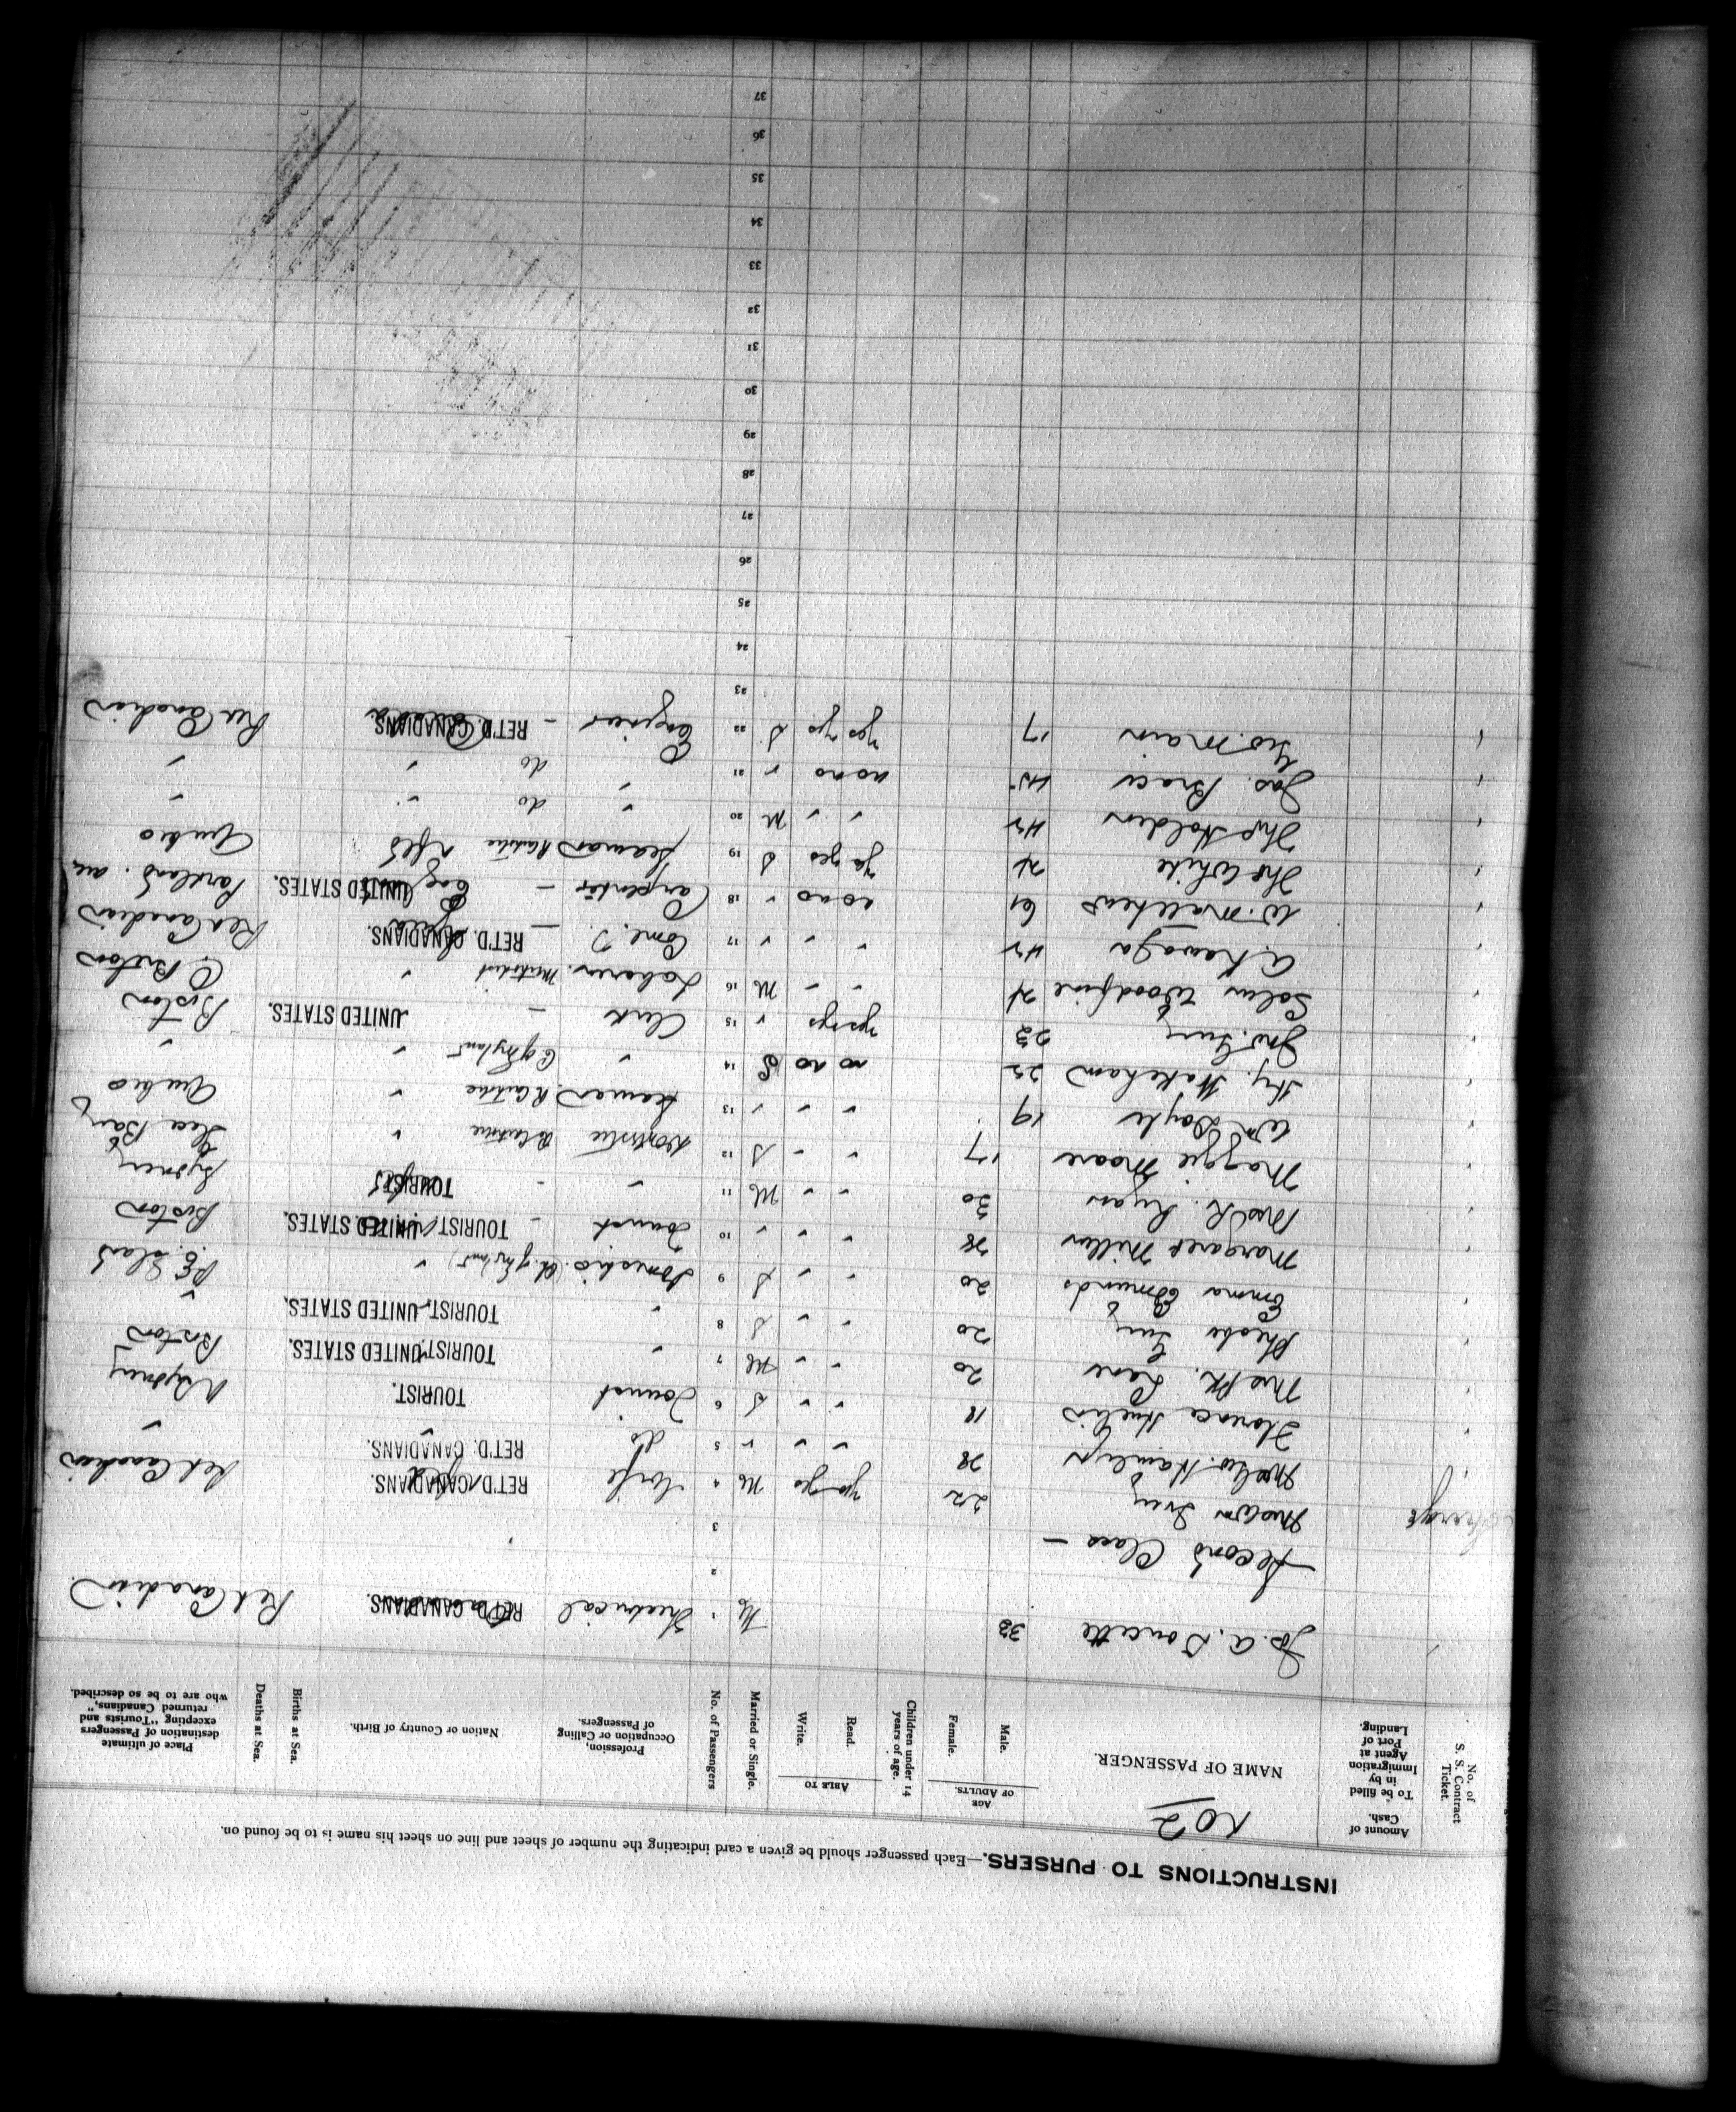 INSTRUCTIONS TO PURSERS.—Each passenger should be given a card indicating the number of sheet and line on sheet his name is to be found on.
No. of S. S. Contract Ticket.
Amount of Cash. To be filled in by Immigration Agent at Port of Landing.
NO 2
NAME OF PASSENGER.
AGE OF ADULTS. Male. Female.
Children under 14 years of age.
ABLE TO Read. Write.
Married or Single.
No. of Passengers
Profession, Occupation or Calling of Passengers.
Nation or Country of Birth.
Births at Sea.
Deaths at Sea.
Place of ultimate destination of Passengers excepting "Tourists and returned Canadians," who are to be so described.
Jos. A. Doucette 33 M 1 Theatrical RET'D. CANADIANS. Ret Canadian
Second Class — 2
3
Mrs Wm Ivey 22 yes yes M 4 Wife RET'D. CANADIANS. Ret Canadian
Mrs Geo. Hamlyn 28 " " " " 5 do RET'D. CANADIANS. "
Florence 18 " " S 6 Tourist TOURIST. N Sydney
Mrs Lane 20 " " M 7 " TOURIST. UNITED STATES. Boston
Phoebe 20 " " S 8 " TOURIST. UNITED STATES. "
Emma Edmunds 20 " " S 9 Domestic (Ch. of England) " P.E. Island
Margaret Miller 28 " " " 10 Tourist - TOURIST. UNITED STATES. Boston
Mrs R. Ryan 30 " " M 11 " - TOURIST. Sydney
Maggie Moore 17 " " S 12 Domestic "
Wm Doyle 19 " " " 13 Seaman " Quebec
Hy. Wakeham 22 no no S 14 " C of England " "
Jno. 23 yes yes " 15 Clerk — UNITED STATES. Boston
Woodfine " " M 16 Laborer Methodist " C. Breton
A. 42 " " " 17 Coml. T — RET'D. CANADIANS. Ret Canadian
W. Matthews 61 no no " 18 Carpenter — UNITED STATES. Portland. Me
Tho White yes S 19 Seaman Nfld Quebec
Tho Holden 42 " " M 20 " do " "
Jas. Brace no no " 21 " do " "
Geo. Main 17 yes yes S 22 Engineer — RET'D. CANADIANS. Ret Canadian
23
24
25
26
27
28
29
30
31
32
33
34
35
36
37